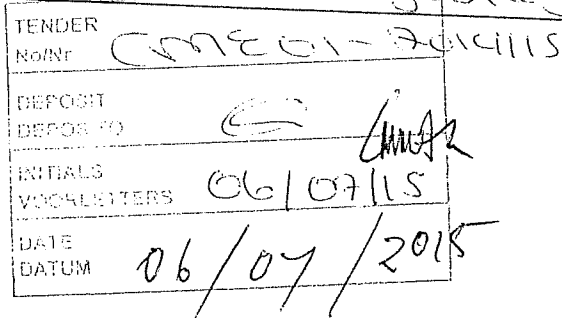 TENDER
No/Nr CME01-2014/15
DEPOSIT
DEPOSITO
INITIALS
VOORLETTERS 06/07/15
DATE
DATUM 06/07/2015